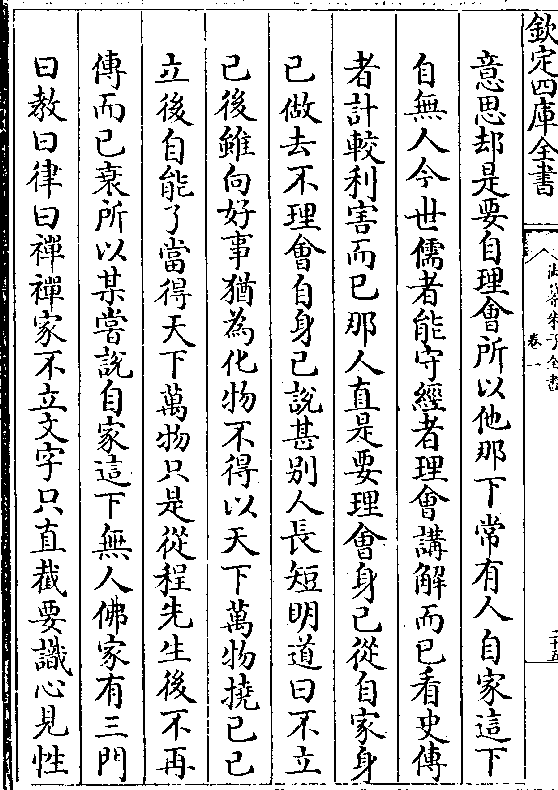 欽定四庫全書
御纂朱子全書
卷一
二十五
意思却是要自理會所以他那下常有人自家這下
自無人今世儒者能守經者理會講解而已看史傳
者計較利害而已那人直是要理會身己從自家身
己做去不理會自身己說甚别人長短明道曰不立
己後雖向好事猶為化物不得以天下萬物撓己己
立後自能了當得天下萬物只是從程先生後不再
傳而已衰所以某嘗說自家這下無人佛家有三門
曰教曰律曰禪禪家不立文字只直截要識心見性